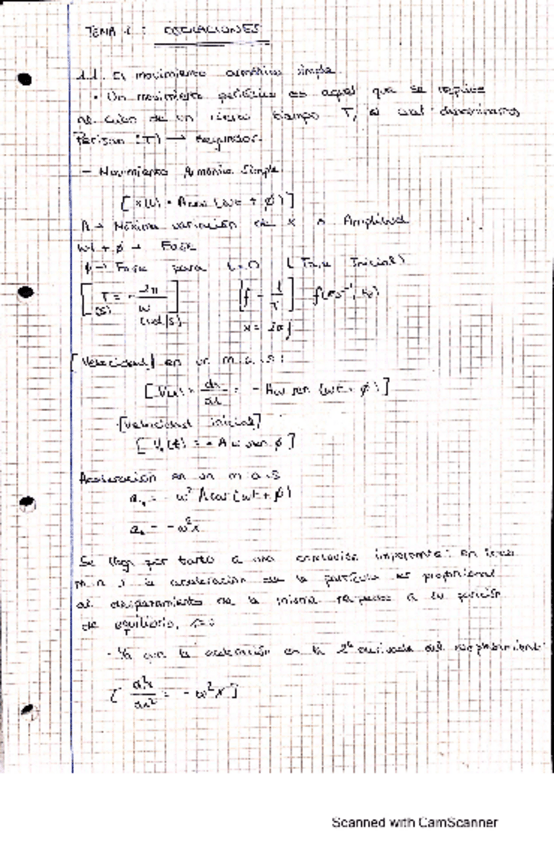 TEMA 1: OSCILACIONES
1.1. El movimiento armónico simple
• Un movimiento periódico es aquel que se repite
al cabo de un cierto tiempo T, al cual denominamos
Periodo (T) → segundos.
- Movimiento Armónico Simple
[x(t) = A cos (wt + φ)]
A → Máxima variación de x → Amplitud
wt + φ → Fase
φ → Fase para t=0 (Fase Inicial)
[T = 2π/w] [f = 1/T] f(s⁻¹, Hz)
(s) (rad/s) w = 2πf
[Velocidad] en un m.a.s:
[V(t) = dx/dt = -Aw sen (wt + φ)]
[Velocidad inicial]
[V₀(t) = -Aw sen φ]
Aceleración en un m.a.s
a = -w² A cos (wt + φ)
a = -w²x
Se llega por tanto a una conclusión importante: en
m.a.s la aceleración de la partícula es proporcional
al desplazamiento de la misma respecto a su posición
de equilibrio,
- Ya que la aceleración es la 2ª derivada del desplazamiento:
[d²x/dt² = -w²x]
Scanned with CamScanner